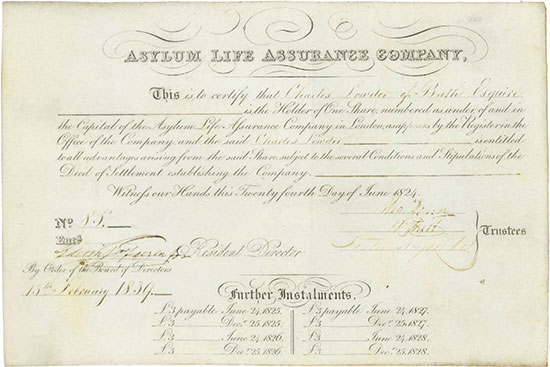 ASYLUM LIFE ASSURANCE COMPANY,
This is to certify that Charles Lowder of Bath Esquire
is the Holder of One Share, numbered as under, of and in
the Capital of the Asylum Life Assurance Company in London, as appears by the Register in the
Office of the Company, and the said Charles Lowder is entitled
to all advantages arising from the said Share, subject to the several Conditions and Stipulations of the
Deed of Settlement establishing the Company.
Witness our Hands this Twenty fourth Day of June 1824.
No
Entd
Trustees
Resident Director
By Order of the Board of Directors
February
Further Instalments.
£3 payable June 24, 1825. £3 payable June 24, 1827.
£3 Decr. 25, 1825. £3 Decr. 25, 1827.
£3 June 24, 1826. £3 June 24, 1828.
£3 Decr. 25, 1826. £3 Decr. 25, 1828.